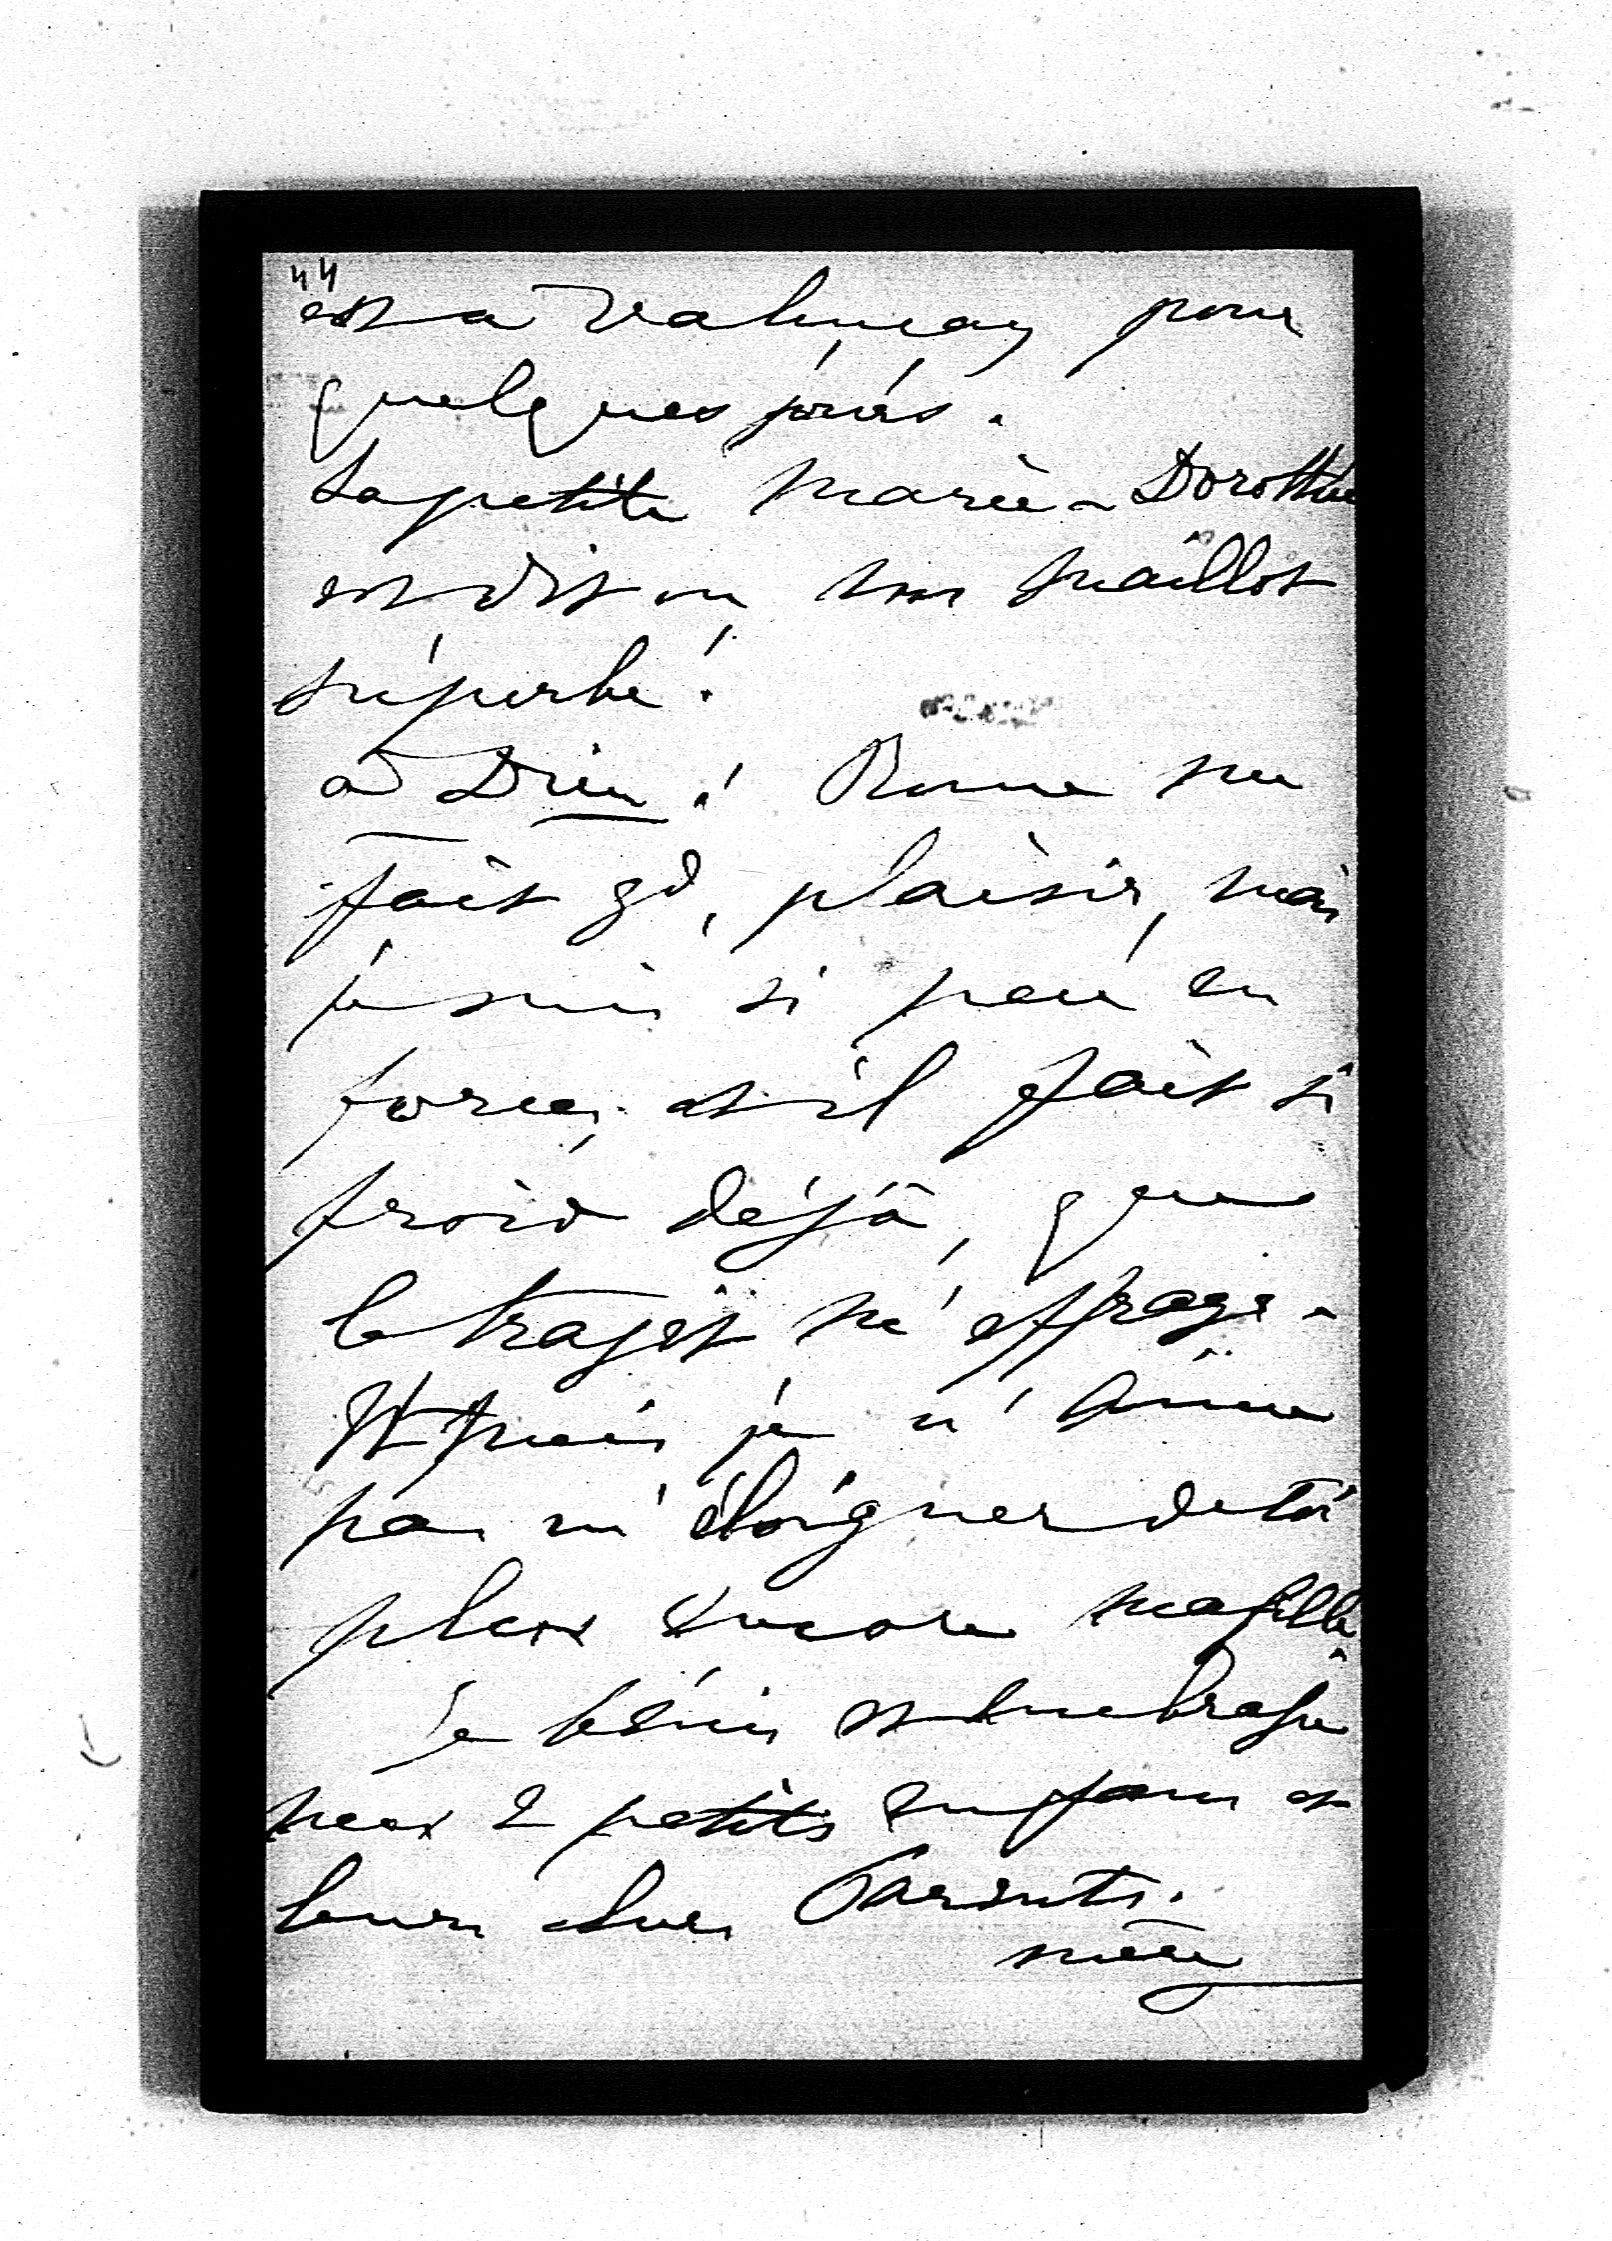 44
est a Valençay pour
quelques jours.
La petite Marie-Dorothée
est dit on son maillot
superbe!
a Dieu! Rome me
fait gd, plaisir, mais
je suis si peu en
forces, et il fait si
froid déjà, que
le trajet m'effraye.
Et puis je n'aime
pas m'éloigner de toi
plus encore ma fille.
Je bénis et embrasse
mes 2 petits enfans et
leurs chers Parents.
mère